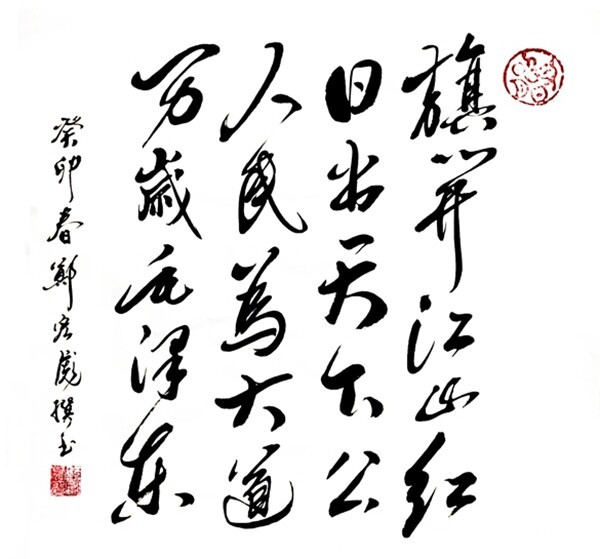 旗開江山红
日出天下公
人民為大道
万歲毛澤东
癸卯春鄭宏彪撰书